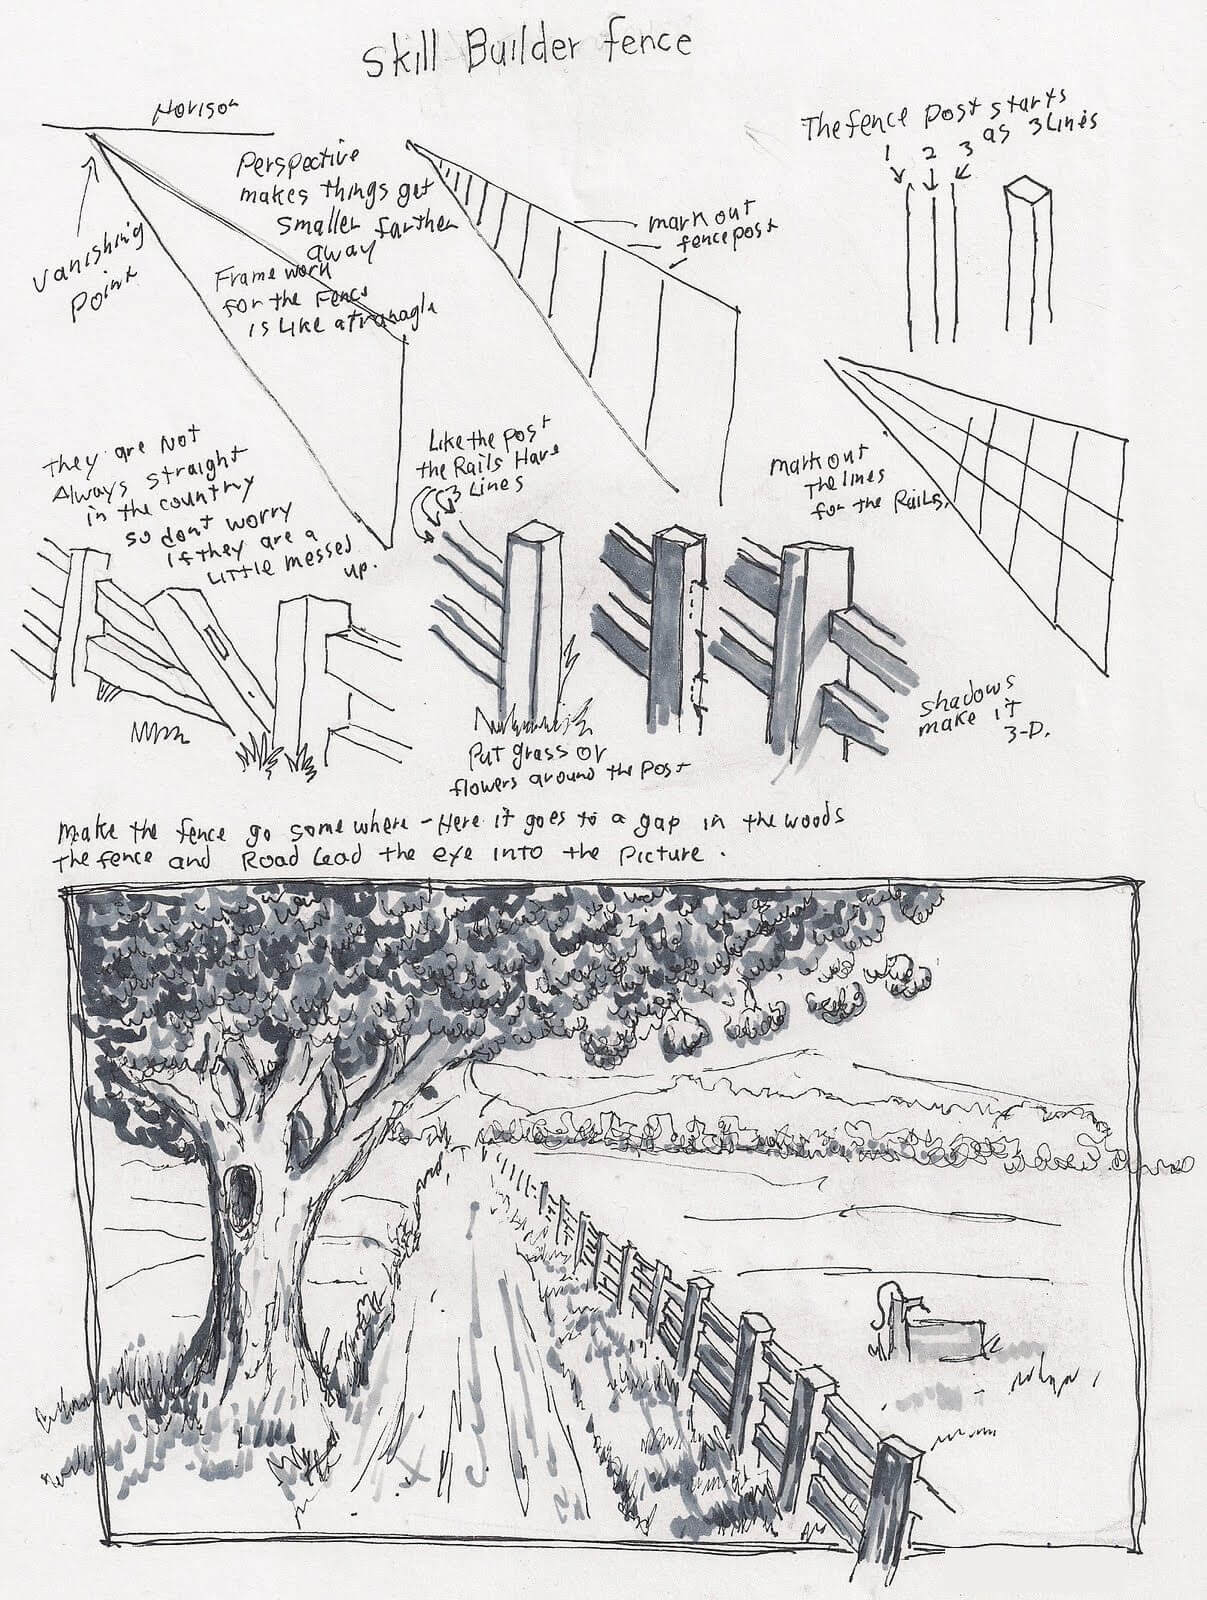 Skill Builder fence
Horison
Vanishing
Point
Perspective
makes things get
smaller farther
away
Frame work
for the Fence
is Like a tranagle
mark out
fence post
The fence post starts
as 3 Lines
1 2 3
They are Not
Always straight
in the country
so dont worry
If they are a
Little messed
up.
Like the post
the Rails Have
3 Lines
mark out
The lines
for the Rails.
Put grass or
flowers around the post
shadows
make it
3-D.
Make the fence go some where - Here it goes to a gap in the woods
The fence and Road Lead the eye into the Picture.